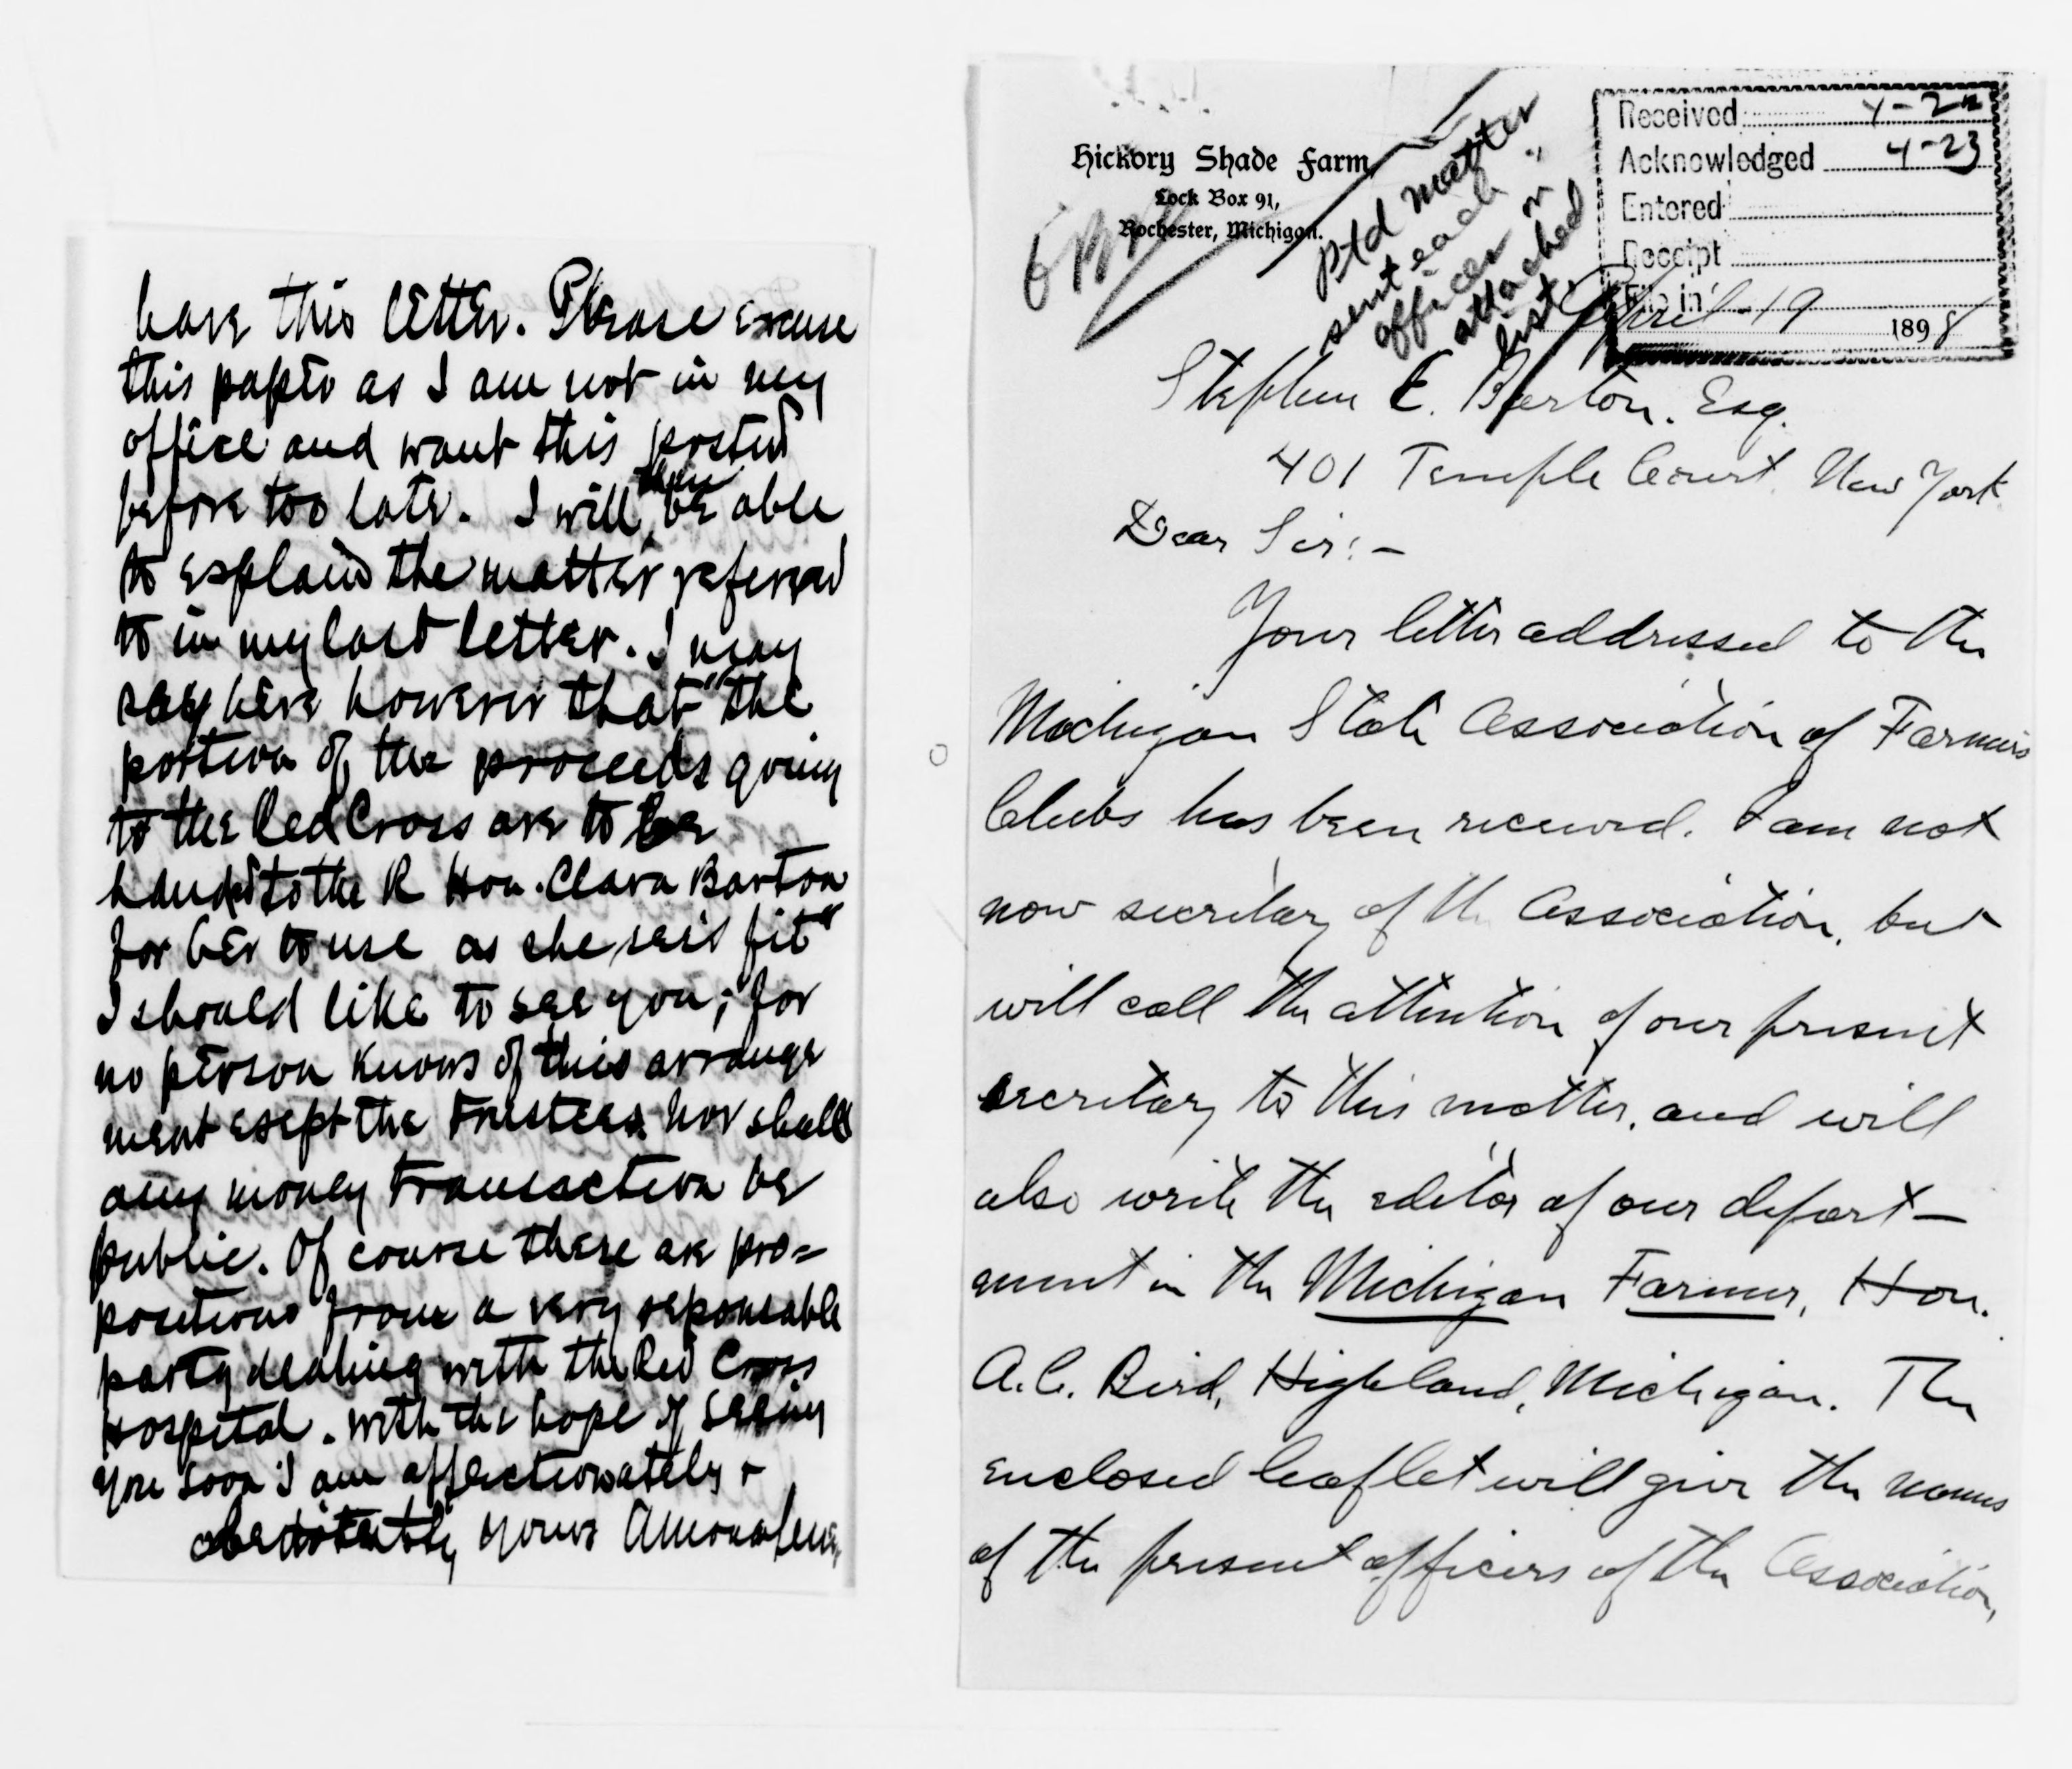 have this letter. Please excuse
this paper as I am not in my
office and want this posted
before too late. I will then be able
to explain the matter refered
to in my last letter. I may
say here however that "the
portion of the proceeds going
to the Red Cross are to be
handed to the R Hon. Clara Barton
for her to use as she sees fit"
I should like to see you; for
no person knows of this arrange
ment exept the Trustees. Nor shall
any money transaction be
public. Of course there are pro=
positions from a very reponsable
party dealing with the Red Cross
Hospital. With the hope of seeing
you soon I am affectionately +
yours
Hickory Shade Farm,
Lock Box 91,
Rochester, Michigan.
Ptd matter
sent each
officer on
attached
list.
Received 4-22
Acknowledged 4-23
Entered
Receipt
File in
April 19 1898
Stephen E. Barton. Esq.
401 Temple Court, New York
Dear Sir:-
Your letter addressed to the
Michigan State Association of Farmers
Clubs has been received. I am not
now secretary of the Association, but
will call the attention of our present
secretary to this matter, and will
also write the editor of our depart-
ment in the Michigan Farmer, Hon.
A. C. Bird, Highland, Michigan. The
enclosed leaflet will give the names
of the present officers of the Association,